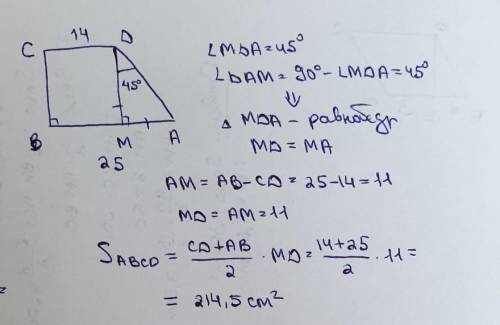 14
C D
45°
B M A
25
∠MDA = 45°
∠DAM = 90° - ∠MDA = 45°
⇓
△ MDA - равнобедр
MD = MA
AM = AB - CD = 25 - 14 = 11
MD = AM = 11
S_ABCD = (CD + AB)/2 · MD = (14 + 25)/2 · 11 =
= 214,5 cm²